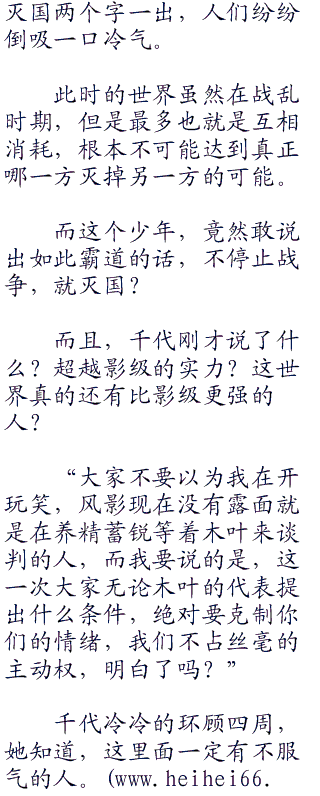 灭国两个字一出，人们纷纷
倒吸一口冷气。
此时的世界虽然在战乱
时期，但是最多也就是互相
消耗，根本不可能达到真正
哪一方灭掉另一方的可能。
而这个少年，竟然敢说
出如此霸道的话，不停止战
争，就灭国？
而且，千代刚才说了什
么？超越影级的实力？这世
界真的还有比影级更强的
人？
“大家不要以为我在开
玩笑，风影现在没有露面就
是在养精蓄锐等着木叶来谈
判的人，而我要说的是，这
一次大家无论木叶的代表提
出什么条件，绝对要克制你
们的情绪，我们不占丝毫的
主动权，明白了吗？”
千代冷冷的环顾四周，
她知道，这里面一定有不服
气的人。(www.heihei66.